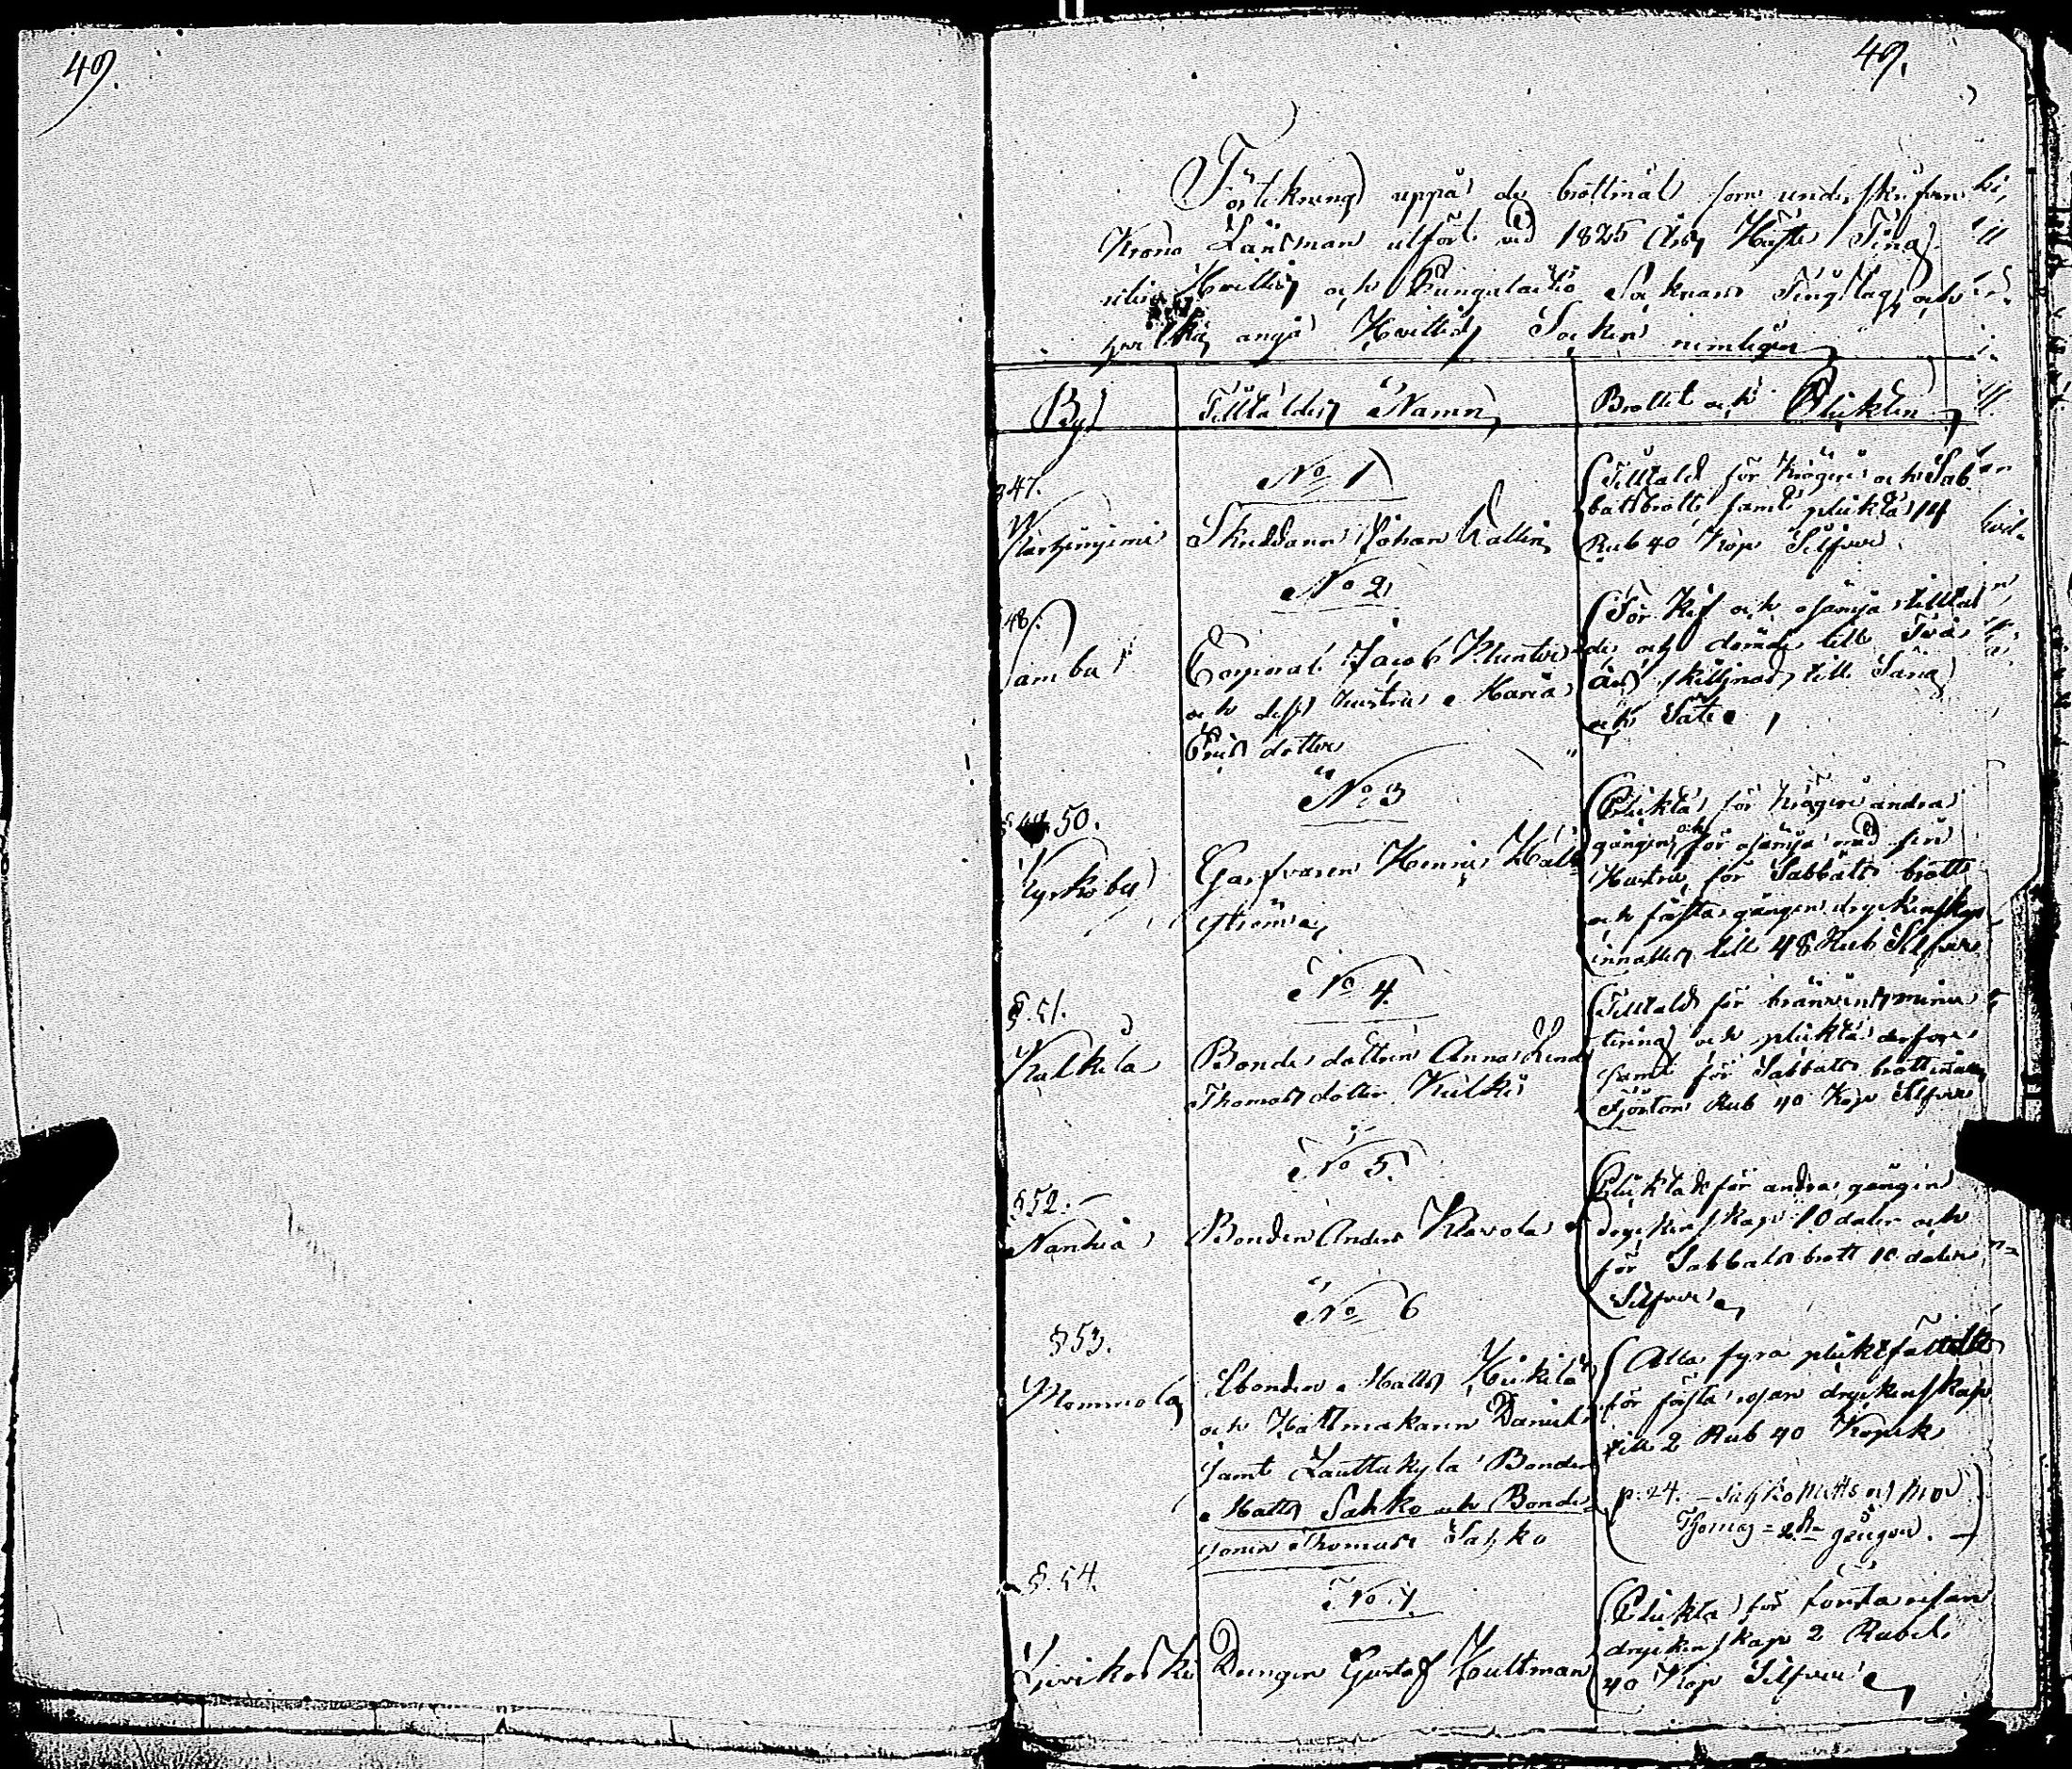 49.
49.
Förtekning uppå de brottmål som underskrifven
Krono Länsman utfört vid 1825 Års Höste Ting
med Hvittis och Pungalaitio Soknars Tingslag och
hvilka angå Hvittis Socken nemligen
By
Tilltaldes Namn
Brottet och Plickten
§ 47.
No 1
Karhiniemi
Skreddaren Johan Dallin
Tilltald för krögeri och Sab
battsbrott samt plickta 14
Rub 40 kop Silfver
48.
No 2
Jamba
Corporal Jacob Flinter
och dess hustru Maria
Eriksdotter
För Kif och osämja tilltal
de och dömde till Två
års skillnad till Säng
och Säte
§ 50.
No 3
Kyrkoby
Garfvaren Henric Häll
ström
Plickta för krögeri andra
gången och för osämja med sin
Hustru för Sabbats brott
och första gången dryckenskap
innalles till 48 Rub Silfver
§. 51.
No 4.
Kulkila
Bonde dottren Anna Lena
Thomas dotter Kulki
Tilltald för bränvins minu
tering och plickta derfore
samt för Sabbats brott
Fjorton Rub 40 Kop Silfver
§ 52.
No 5.
Nanhia
Bonden Anders Klavola
Plicktad för andra gången
dryckenskap 10 daler och
för Sabbats brott 10 daler
Silfver
§ 53.
No 6
Mommola
Bonden Matts Heikilä
och Hattmakaren Daniel
samt Lauttakyla Bonden
Matts Sahko och Bonde
sonen Thomas Sahko
Alla fyra plicktfällde
för första resan dryckenskap
till 2 Rub 40 Kopek
p. 24. – Sahko Matts och
Thomas = 2dra gången. —
§. 54.
No 7.
Livikoski
Drengen Gustaf Hultman
Plickta för första resan
dryckenskap 2 Rubel
40 Kop Silfver